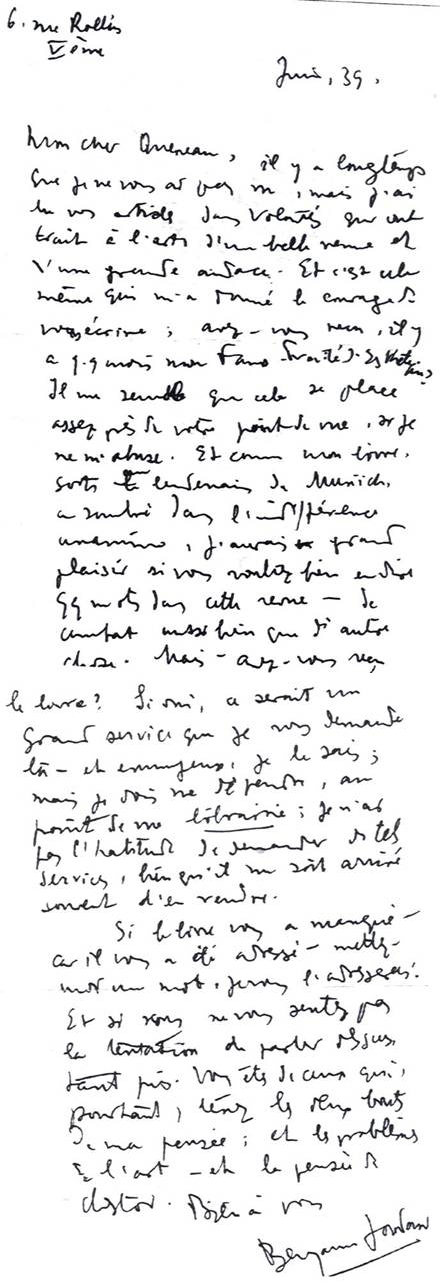 6. rue Rollin
Vème
Juin, 39.
Mon cher Queneau, il y a longtemps
que je ne vous ai pas vu, mais j'ai
lu vos articles dans Volontés qui ont
trait à l'art, d'une belle venue et
d'une grande audace. Et c'est cela
même qui m'a donné le courage de
vous écrire ; avez-vous reçu, il y
a qq mois mon Faux Traité d'Esthétique?
Il me semble que cela se place
assez près de votre point de vue, si je
ne m'abuse. Et comme mon livre,
sorti le lendemain de Munich,
a sombré dans l'indifférence
unanime, j'aurais grand
plaisir si vous vouliez bien en dire
qq mots dans cette revue — de
combat aussi bien que d'autre
chose. Mais - avez-vous reçu
le livre? Si oui, ce serait un
grand service que je vous demande
là - et ennuyeux, je le sais ;
mais je dois me défendre, au
point de vue librairie ; je n'ai
pas l'habitude de demander de tels
services, bien qu'il me soit arrivé
souvent d'en rendre.
Si le livre vous a manqué -
car il vous a été adressé - mettez-
moi un mot, je vous l'adresserai.
Et si vous ne vous sentez pas
la tentation de parler dessus
tant pis. Vous êtes de ceux qui,
pourtant, tenez les deux bouts
de ma pensée ; et les problèmes
de l'art - et la pensée de
Chestov. Bien à vous
Benjamin Fondane